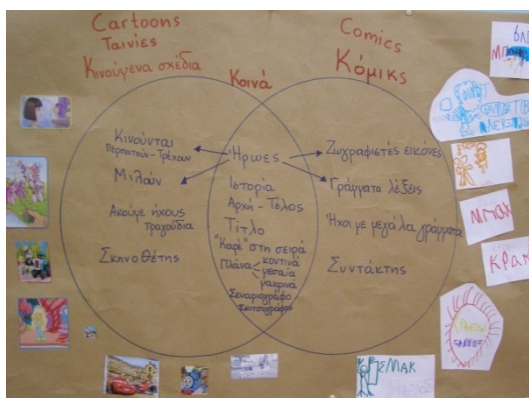 Cartoons
Ταινίες
Κινούμενα σχέδια
Κοινά
Comics
Κόμικς
Κινούνται
Περπατούν-Τρέχουν
Μιλούν
Ακούμε ήχους
τραγούδια
Σκηνοθέτης
Ήρωες
Ιστορία
Αρχή - Τέλος
Τίτλο
"Καρέ" στη σειρά
Πλάνα
κοντινά
μεσαία
μακρινά
Σεναριογράφο
Σκιτσογράφος
Ζωγραφιστές εικόνες
Γράμματα λέξεις
Ήχοι με μεγάλα γράμματα
Συντάκτης
ΚΡΑΚ
ΣΜΑΚ